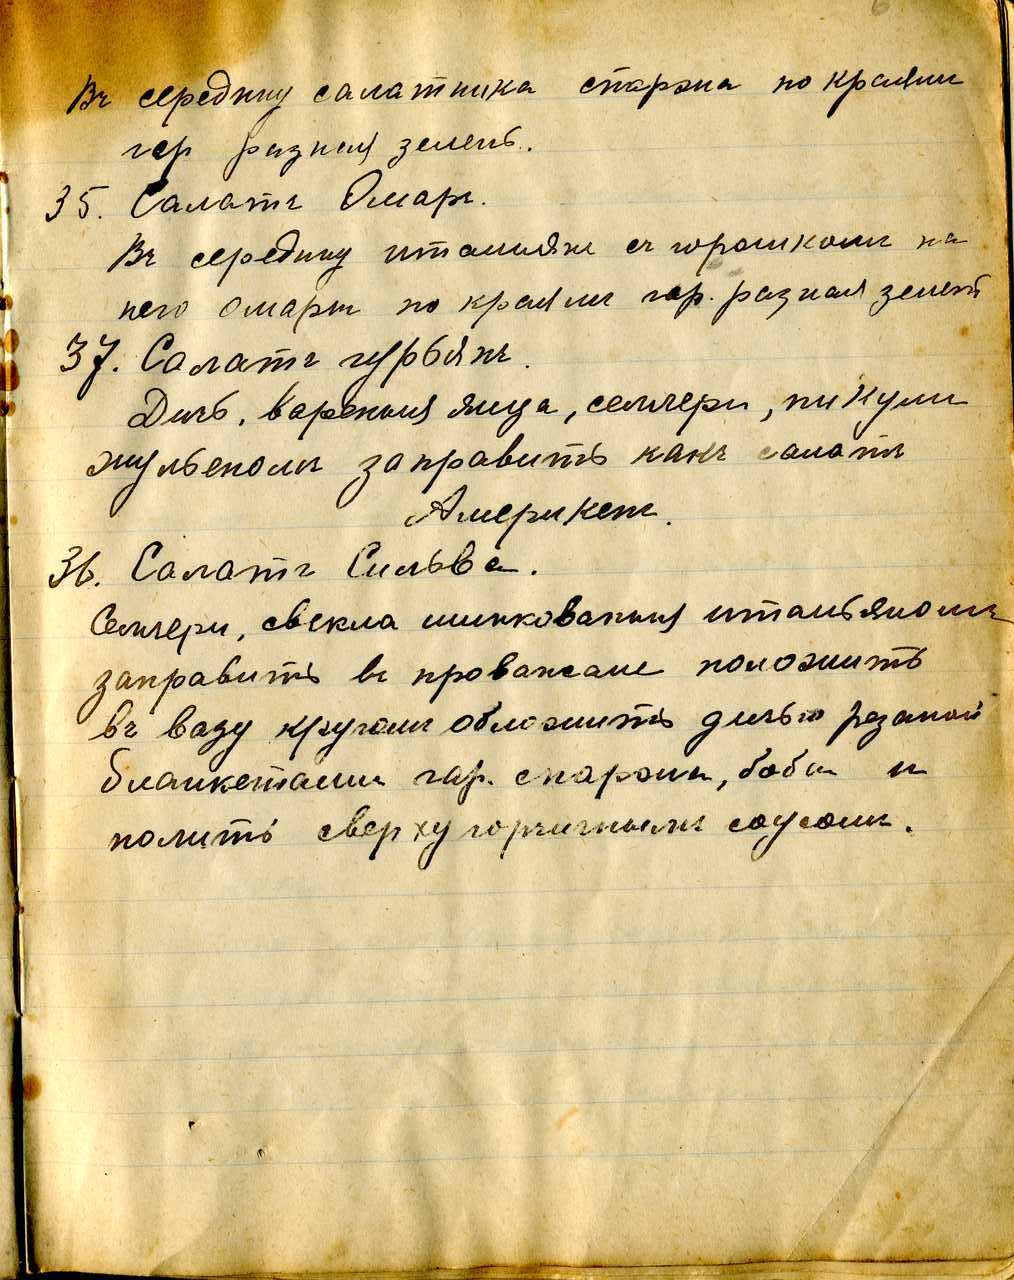 Въ середину салатника спаржа по краямъ
гар разная зелень.
35. Салатъ Омаръ.
Въ середину италиянъ съ горошкомъ на
него омаръ по краямъ гар. разная зелень
37. Салатъ гурьянъ.
Дичь, вареныя яица, селлери, пикули
жульеномъ заправить какъ салатъ
Америкенъ.
36. Салатъ Сильва.
Селлери, свекла шинкованыя итальяномъ
заправить въ провансале положить
въ вазу кругомъ обложить дичью резаной
бланкетами гар. спаржи, бобы и
полить сверху горчичнымъ соусомъ.